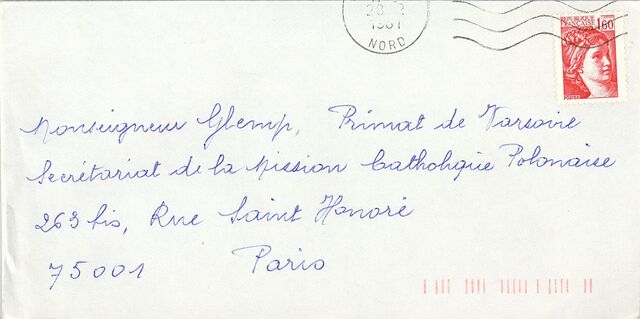 28-2
1981
NORD
REPUBLIQUE
FRANCAISE 1,60
Monseigneur Glemp, Primat de Varsovie
Secrétariat de la Mission Catholique Polonaise
263 bis, Rue Saint Honoré
75001 Paris